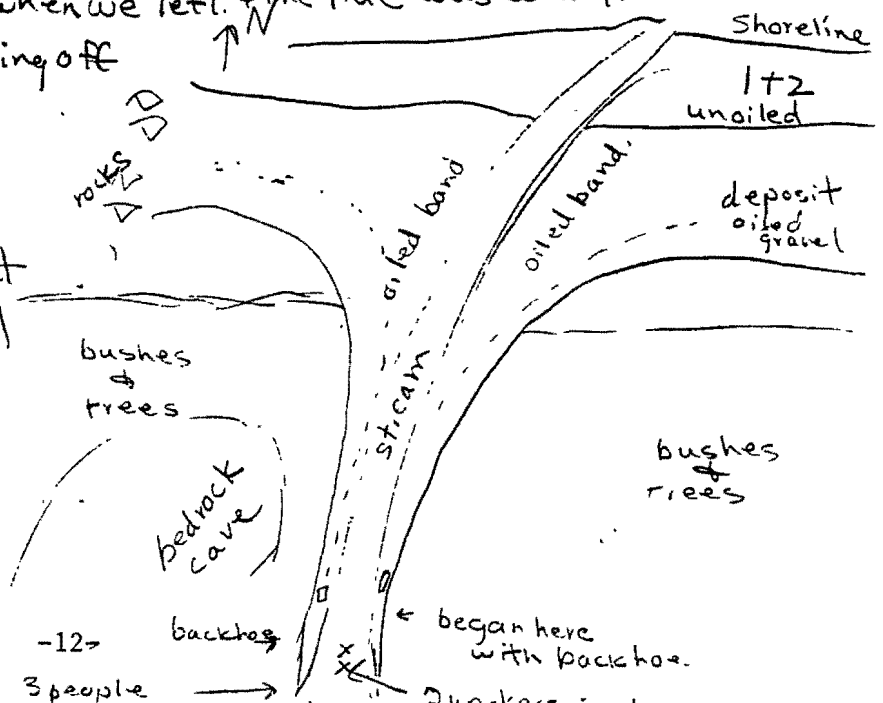 when we left.
ing off
N
Shoreline
1+2
unoiled
rocks
oiled band
oiled band.
deposit
oiled
gravel
bushes
&
trees
stream
bushes
&
trees
bedrock
cave
backhoe
began here
with backhoe.
-12-
3 people